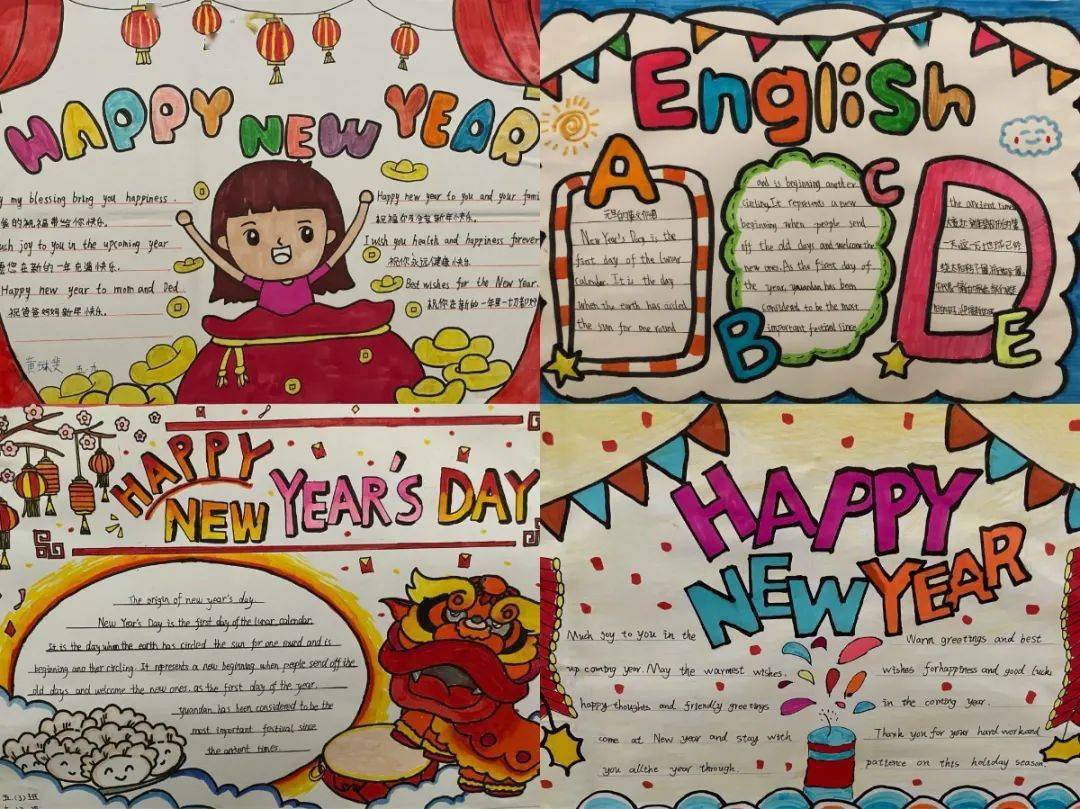 HAPPY NEW YEAR
my blessing bring you happiness .
的祝福带给你快乐.
joy to you in the upcoming year
您在新的一年充满快乐.
Happy new year to mom and Ded
祝爸爸妈妈新年快乐.
Happy new year to you and your
新年快乐.
I wish you health and happiness forever
祝你永远健康快乐
Best wishes for the New Year.
祝你在新的一年里一切
English
A
New Year's Day is the
first day of the lunar
calendar. It is the day
when the earth has
the sun for one round
B
C
and is beginning another
It represents a new
beginning when people send
off the old days and welcome the
new ones. As the first day of
the year, yuandan has been
considered to be the most
important festival since
D
E
the ancient time
HAPPY
NEW YEAR'S DAY
The origin of new year's day
New Year's Day is the first day of the lunar calendar.
It is the day when the earth has circled the sun for one round and is
beginning another circling. It represents a new beginning when people send off the
old days and welcome the new ones. as the first day of the year.
yuandan has been considered to be the
most important festival since
the ancient times.
HAPPY
NEW YEAR
Much joy to you in the
up coming year. May the warmest wishes.
happy thoughts and friendly greetings
come at New year and stay with
you all the year through.
Warm greetings and best
wishes for happiness and good luck
in the coming year.
Thank you for your hard work and
patience on this holiday season.